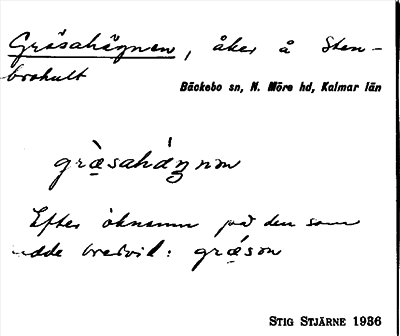 Gräsahägnen, åker å Sten-
brohult
Bäckebo sn, N. Möre hd, Kalmar län
græsahágnən
Efter öknamn på den som
bredvid: græsən
STIG STJÄRNE 1936